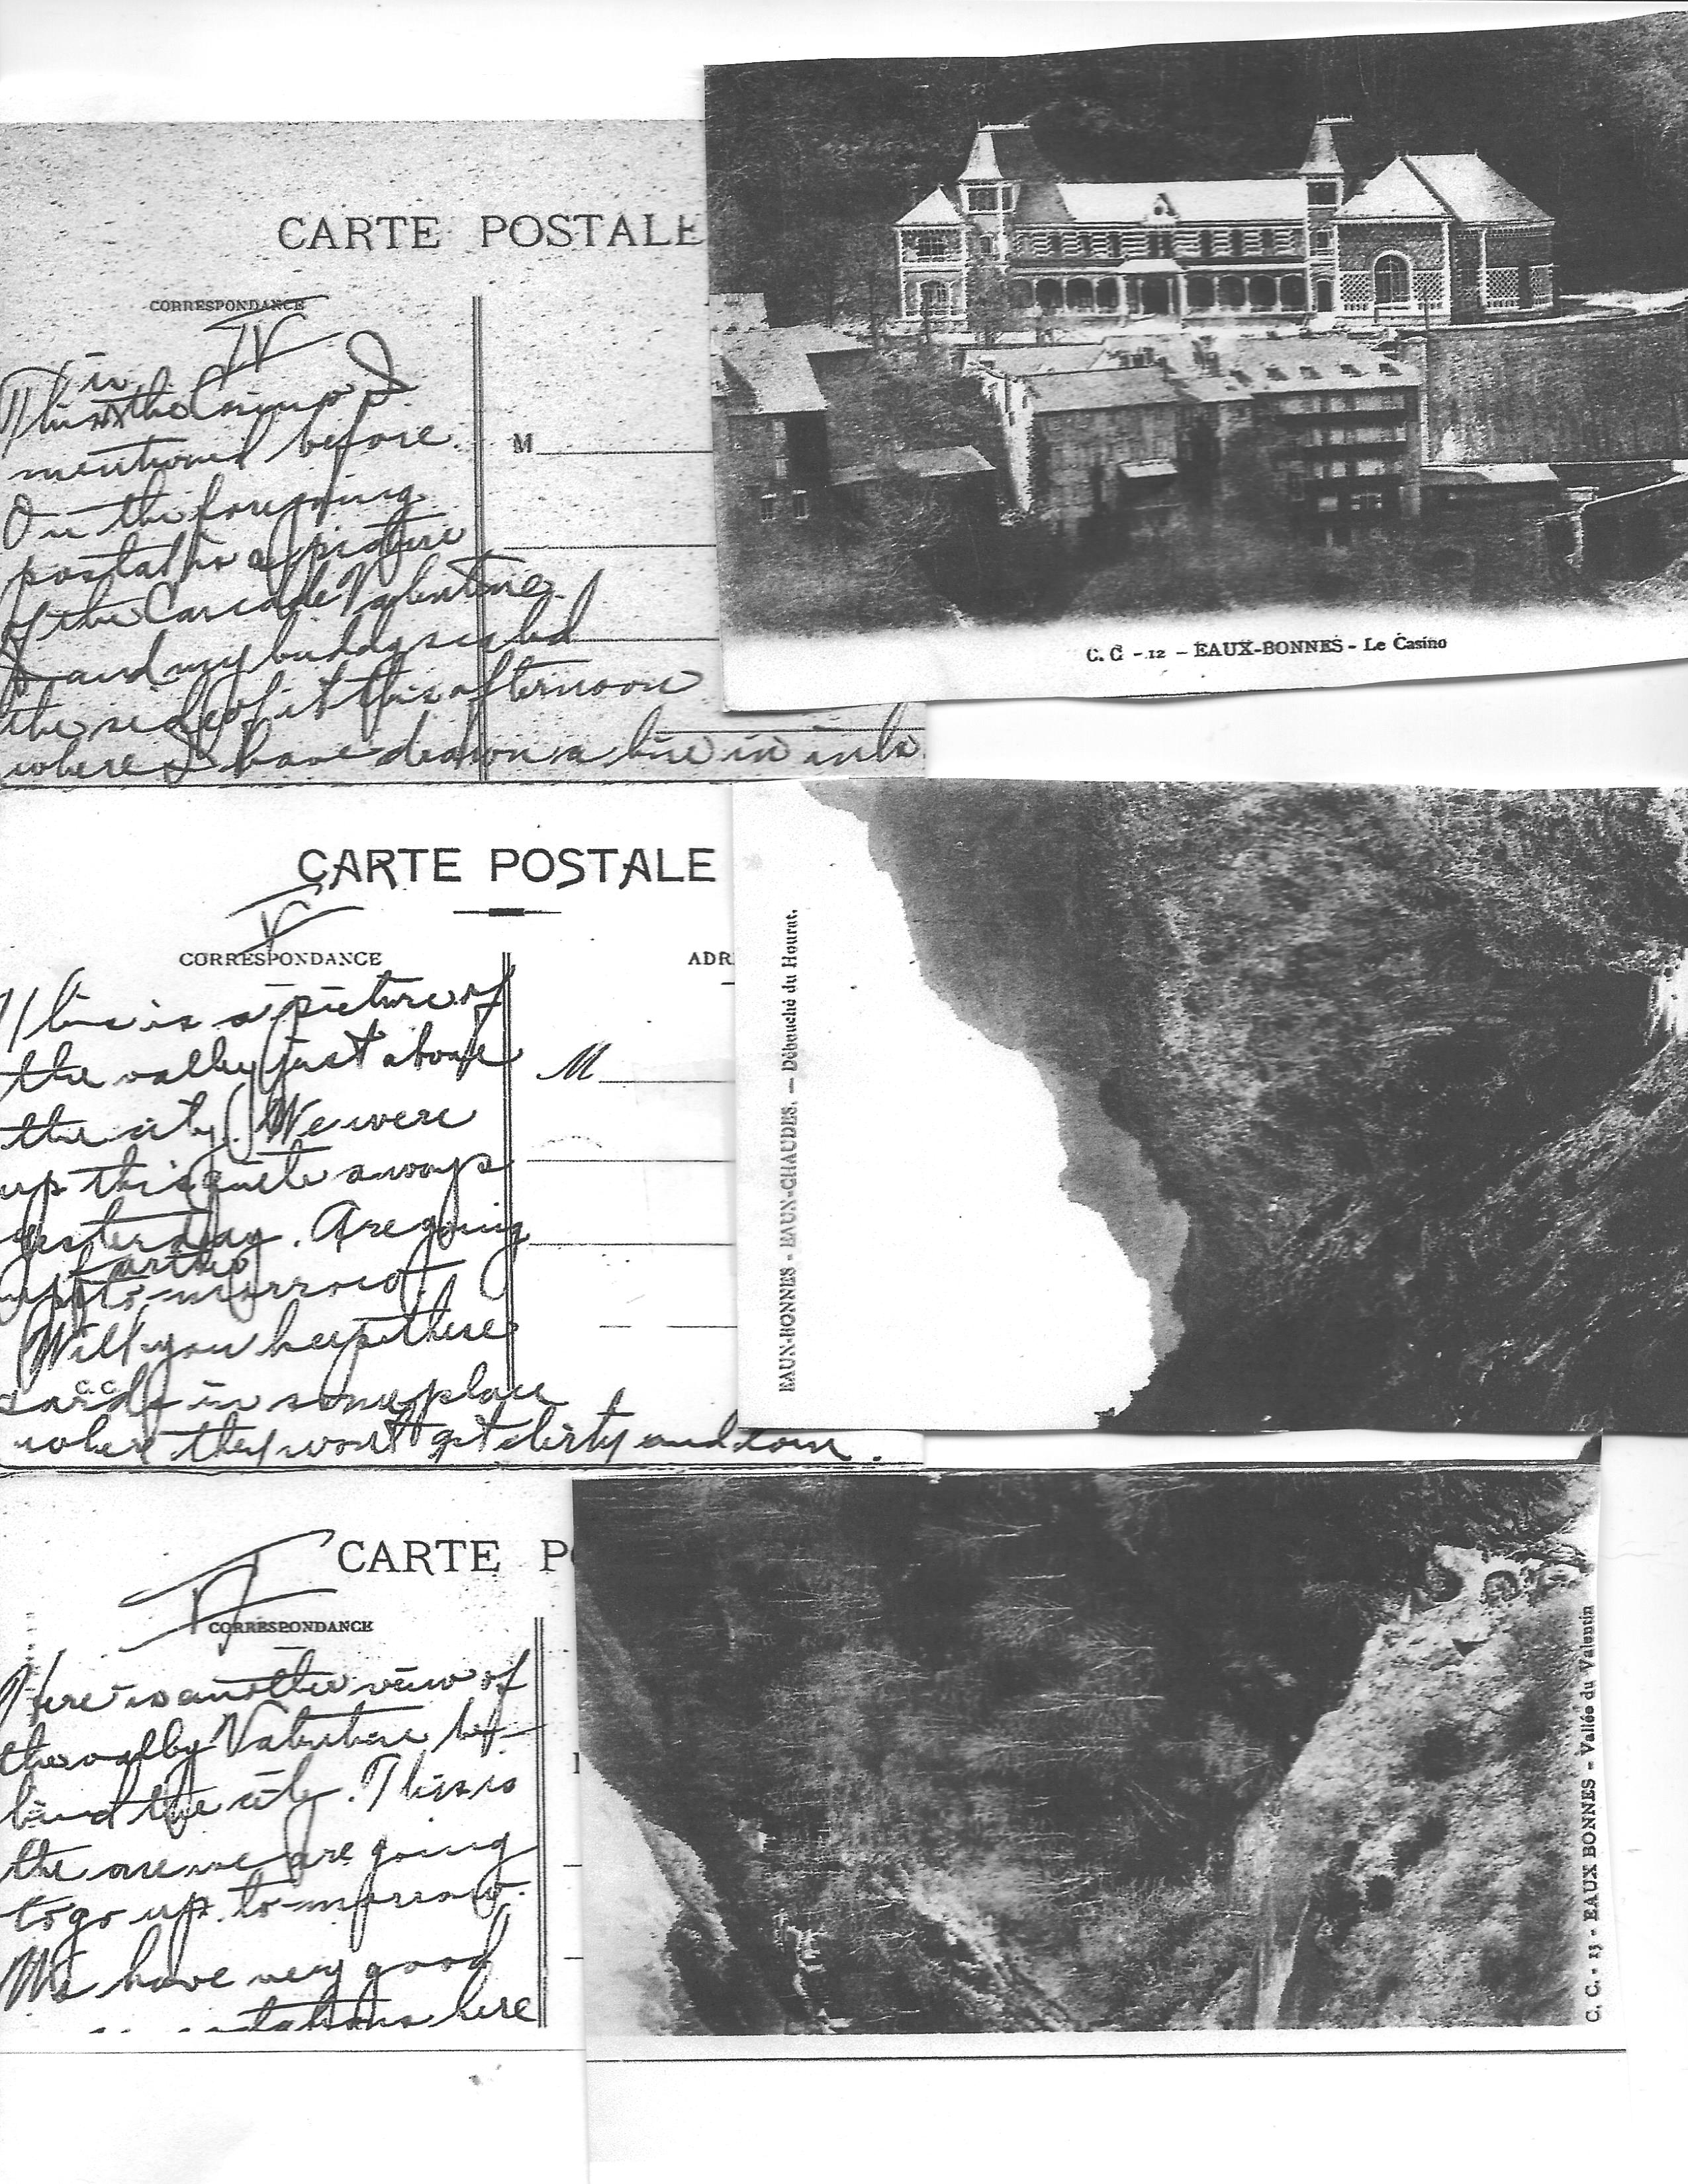 CARTE POSTALE
CORRESPONDANCE
IV
This is the Casino I
mentioned before.
On the foregoing
postal is a picture
of the Cascade Valentine.
I and my buddy scaled
the side of it this afternoon
where I have drawn a line in ink.
M
C. C - 12 - EAUX-BONNES - Le Casino
CARTE POSTALE
V
CORRESPONDANCE
ADR
This is a picture of
the valley just above
the city. We were
up this quite a ways
yesterday. Are going
farther
up to-morrow.
Will you keep these
cards in some place
where they wont get dirty and torn.
C. C.
M
EAUX-BONNES - EAUX-CHAUDES. — Débouché du Hourat.
CARTE P
VI
CORRESPONDANCE
Here is another view of
the valley Valentine be-
hind the city. This is
the one we are going
to go up to-morrow.
We have very good
here
C. C. - 13 - EAUX BONNES - Vallée du Valentin